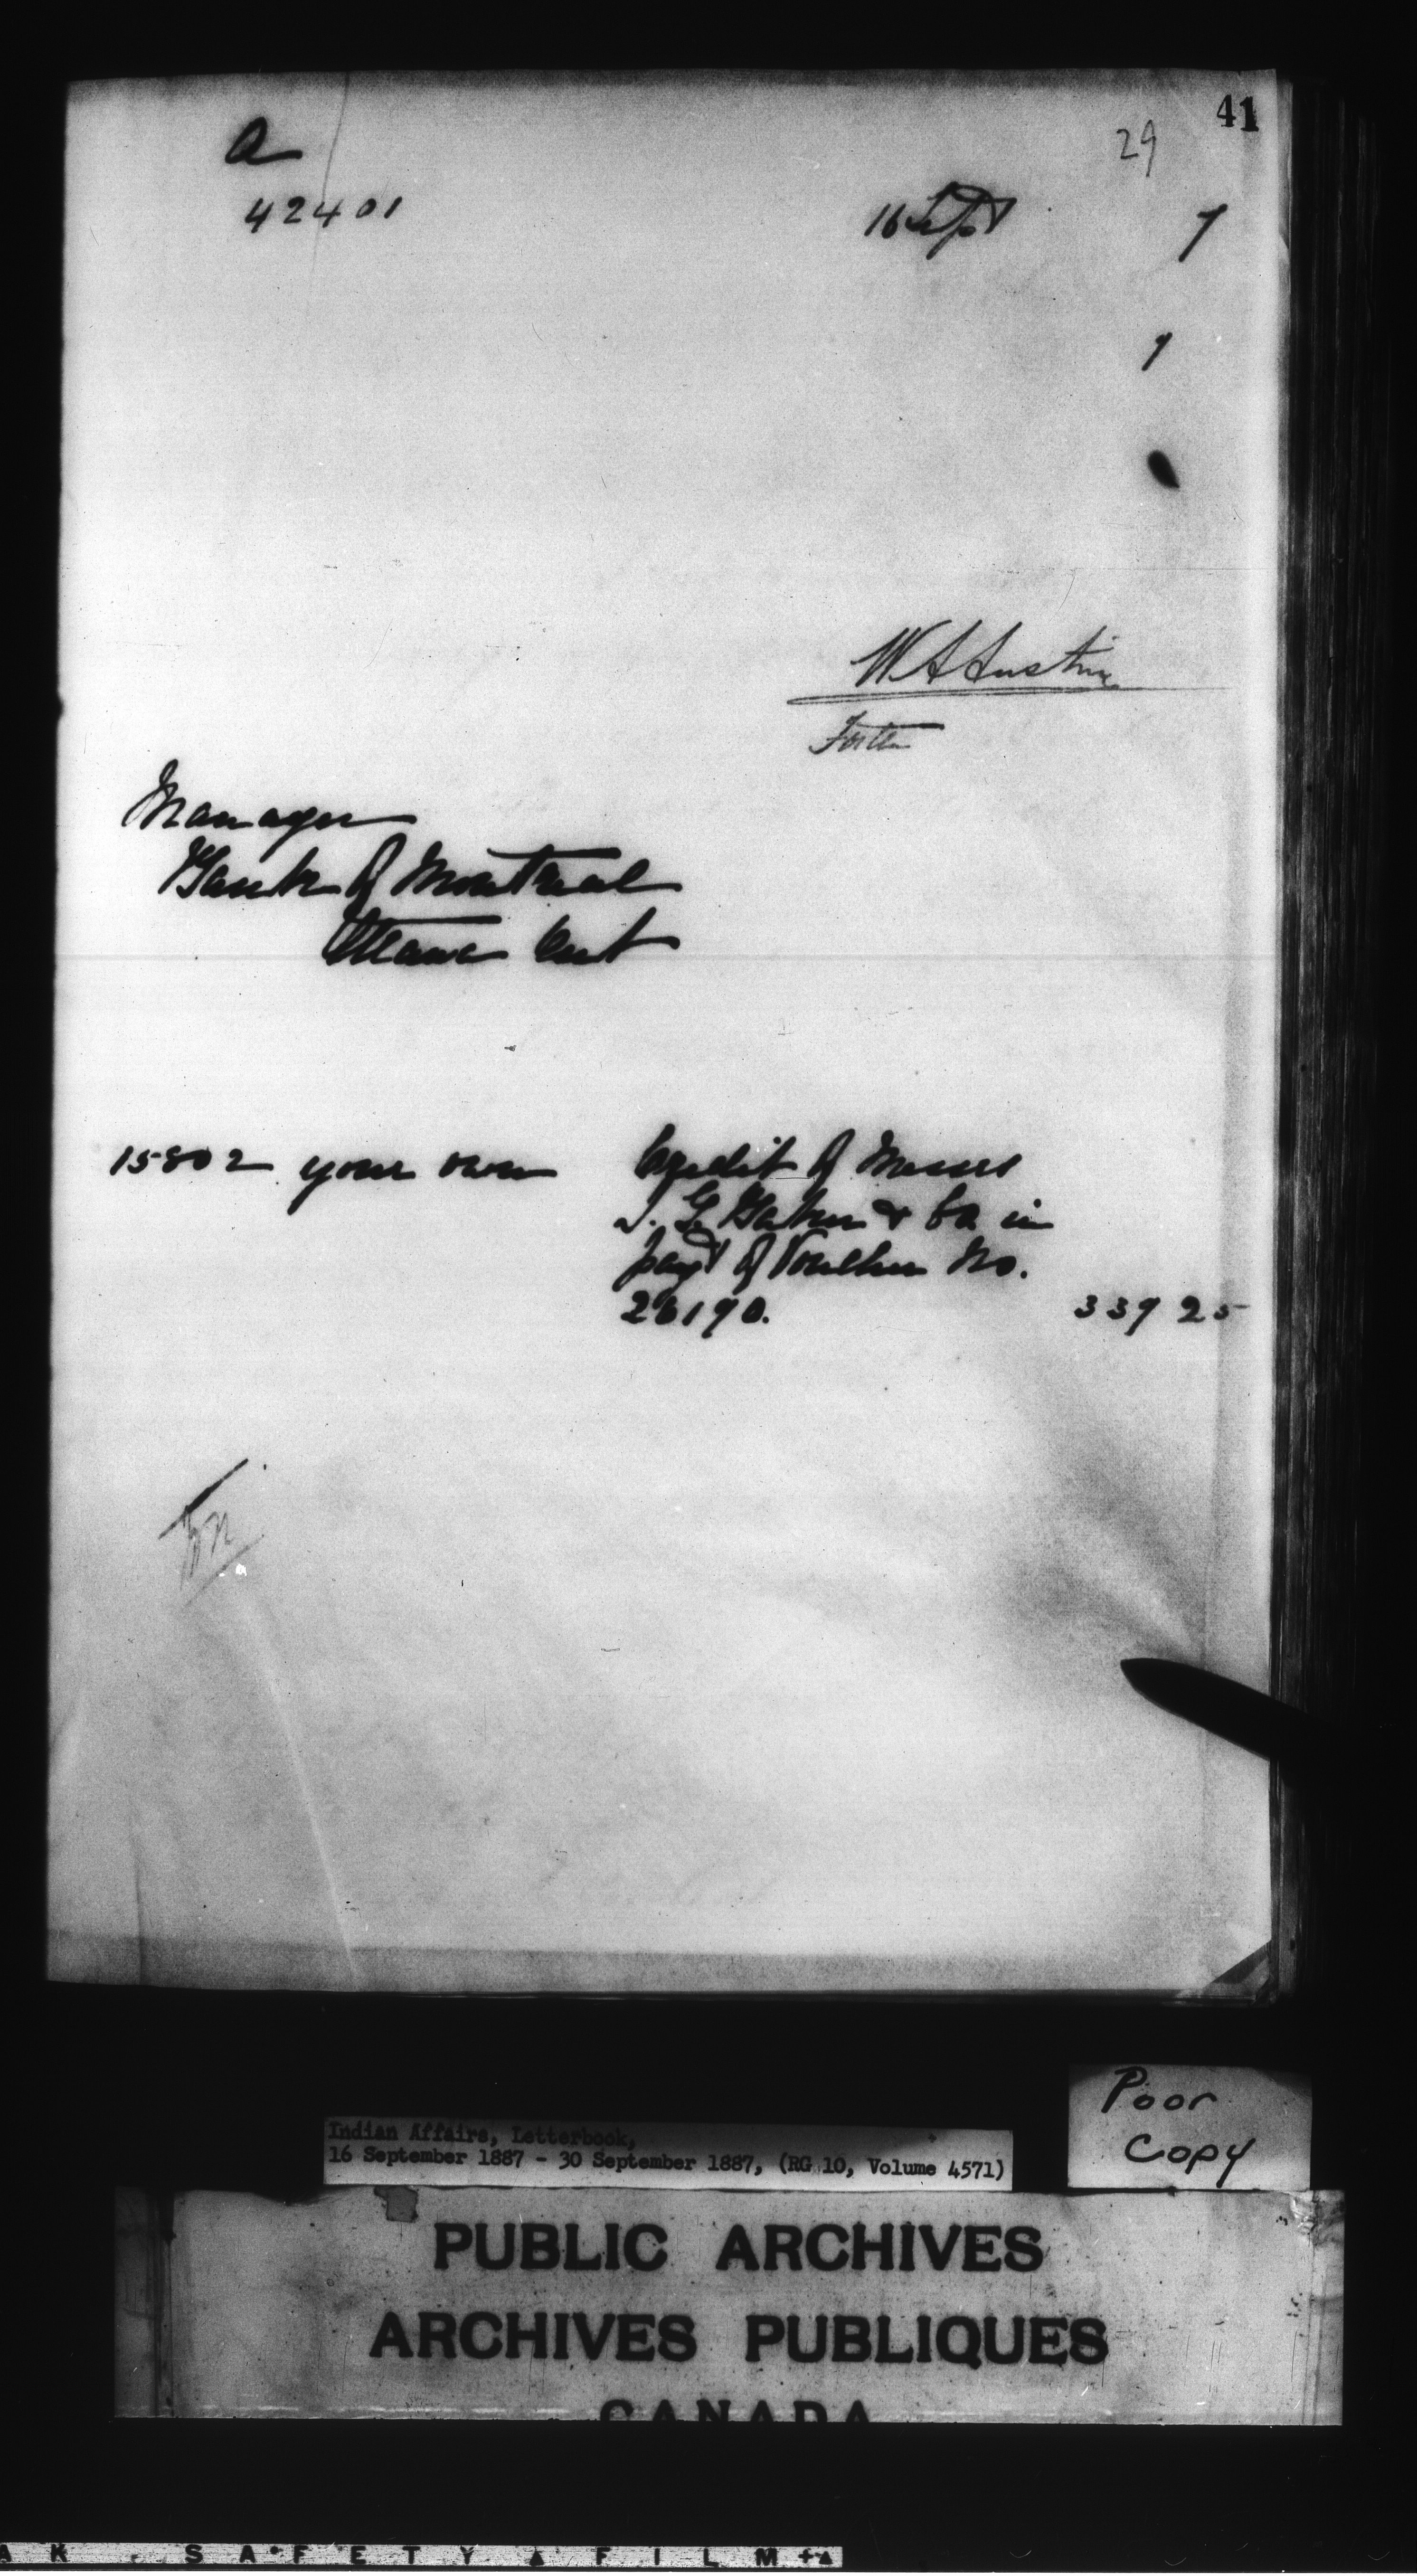 41
29
a
42401 16 Sept 7
1
W A Austin
For the
Manager
Bank of Montreal
Ottawa Ont
15802 your own Credit of Messrs
I. G. Baker & Co in
payt of Voucher No.
26190. 339 25
Poor
Copy
Indian Affairs, Letterbook,
16 September 1887 - 30 September 1887, (RG 10, Volume 4571)
PUBLIC ARCHIVES
ARCHIVES PUBLIQUES
CANADA
AK SAFETY FILM